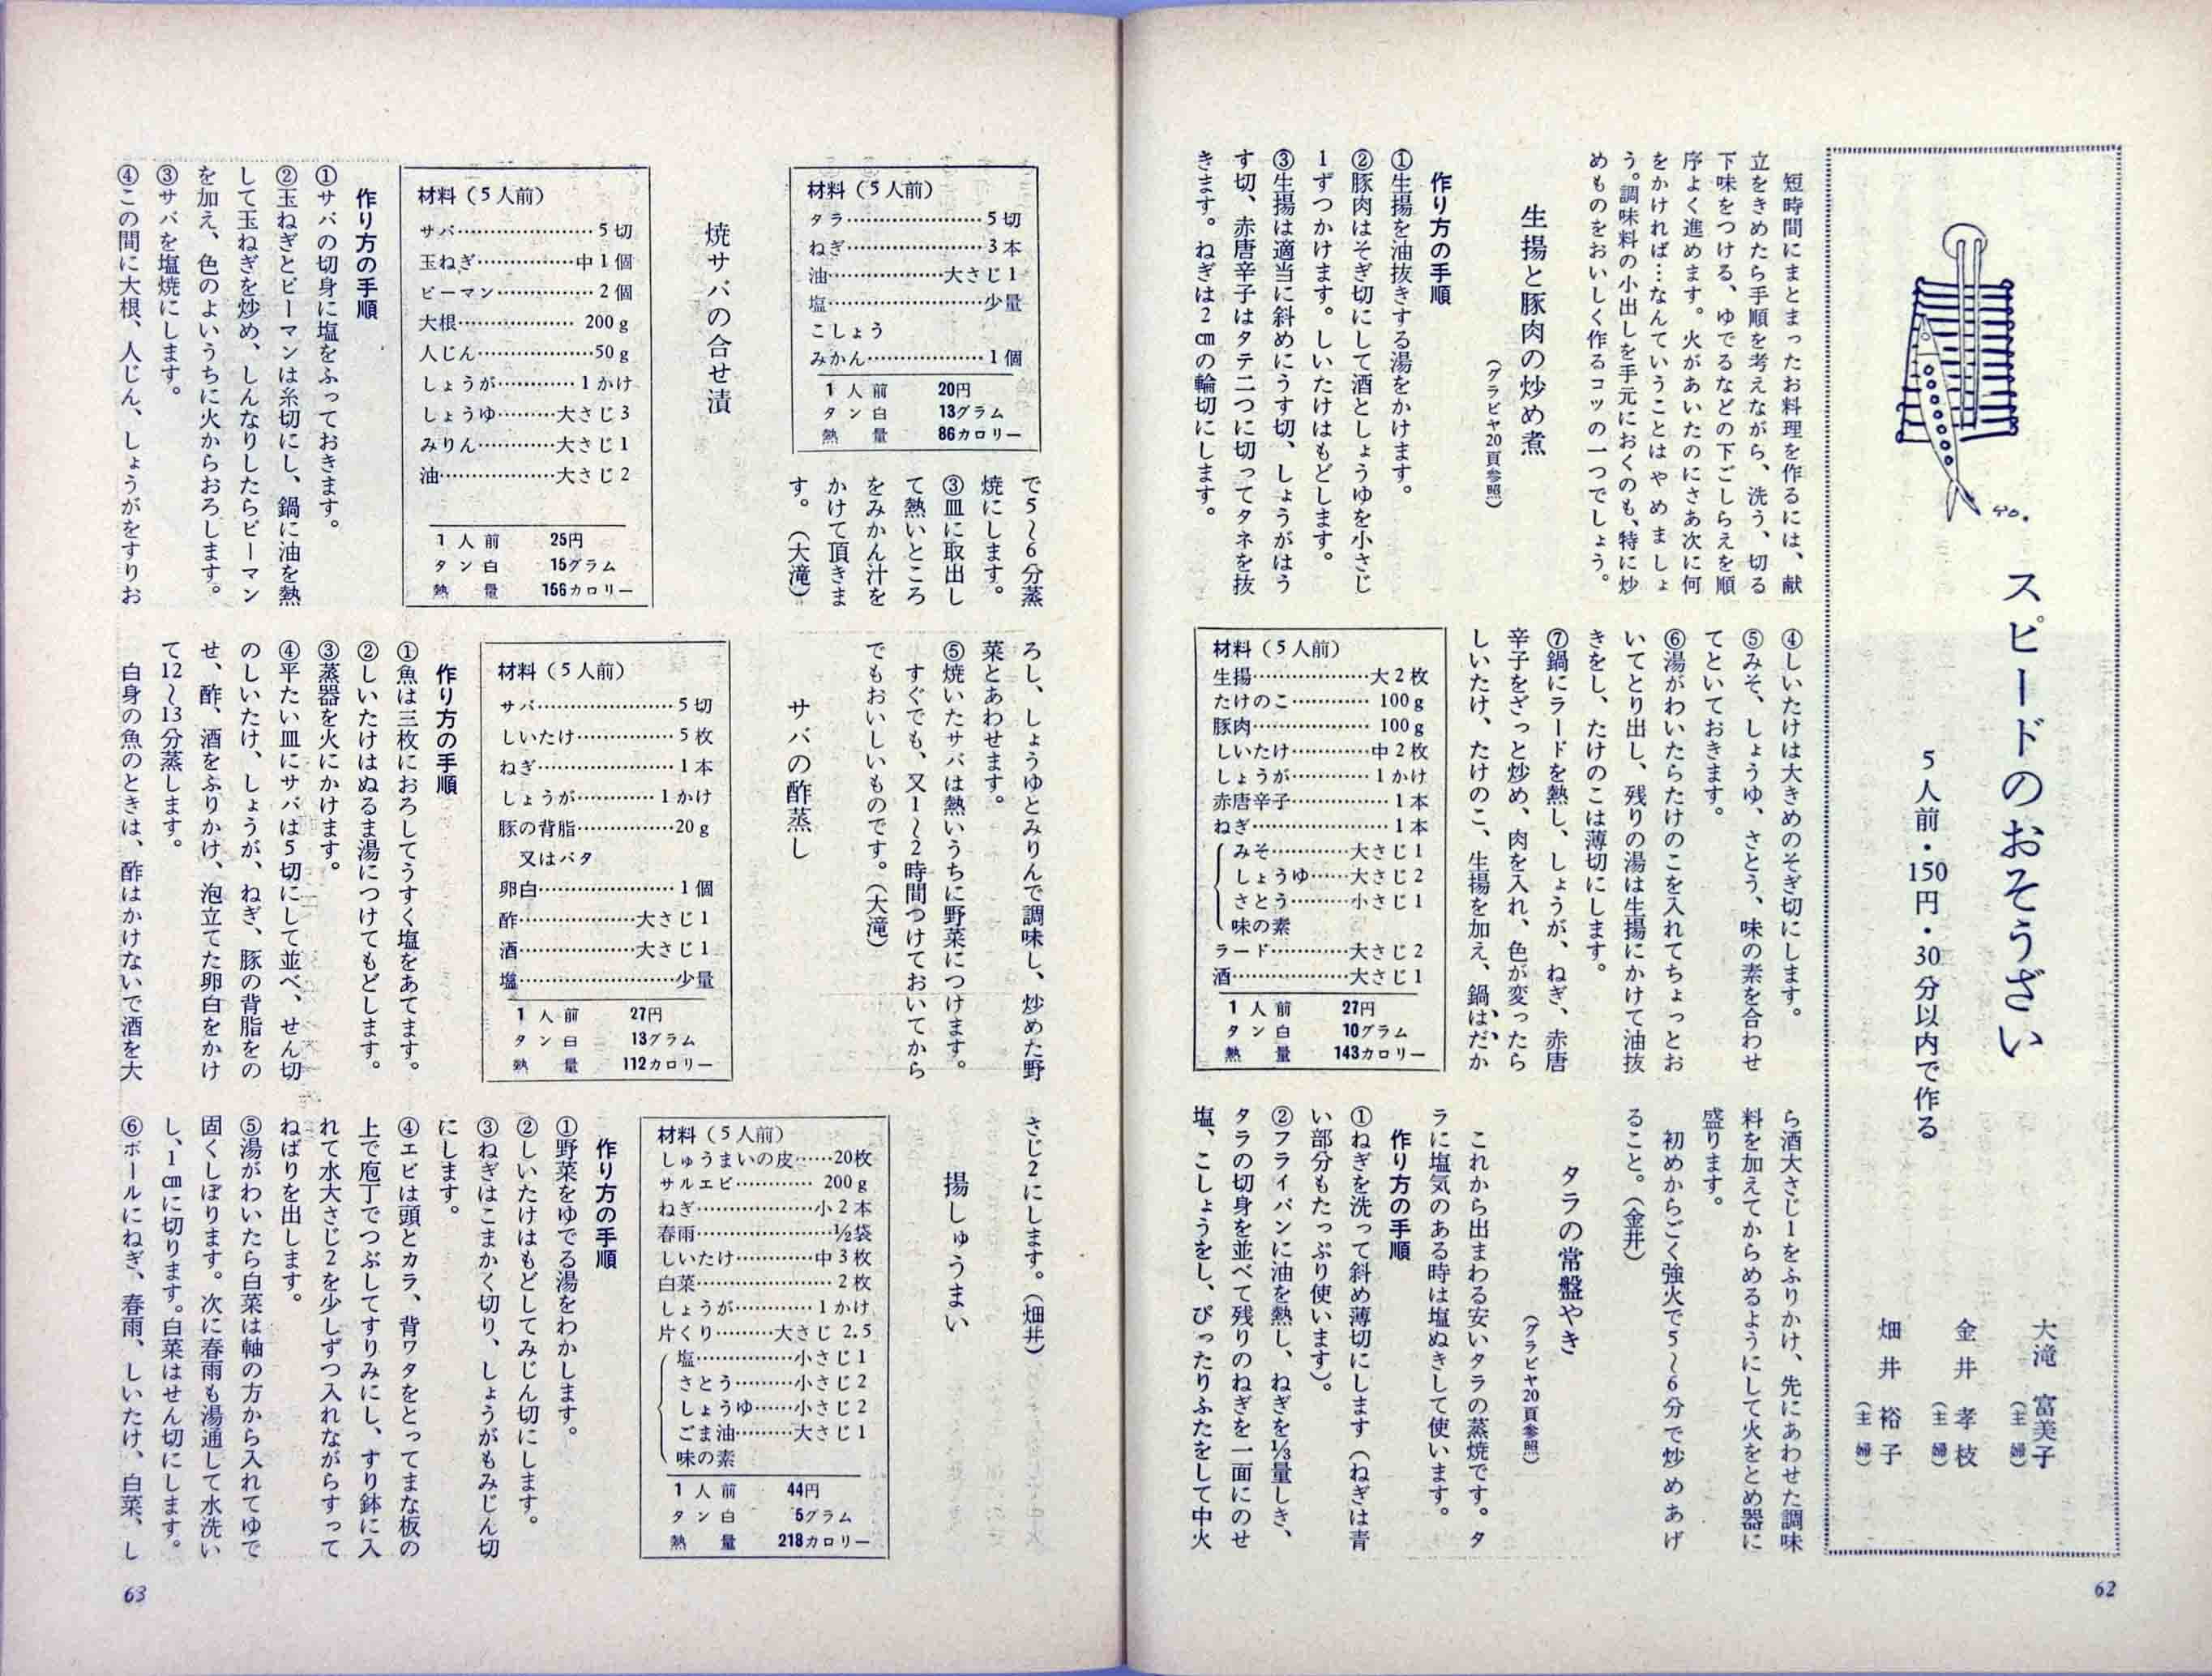 スピードのおそうざい
5人前・150円・30分以内で作る
大滝 富美子
(主婦)
金井 孝枝
(主婦)
畑井 裕子
(主婦)
短時間にまとまったお料理を作るには、献
立をきめたら手順を考えながら、洗う、切る
下味をつける、ゆでるなどの下ごしらえを順
序よく進めます。火があいたのにさあ次に何
をかければ…なんていうことはやめましょ
う。調味料の小出しを手元におくのも、特に炒
めものをおいしく作るコツの一つでしょう。
生揚と豚肉の炒め煮
(グラビヤ20頁参照)
作り方の手順
①生揚を油抜きする湯をかけます。
②豚肉はそぎ切にして酒としょうゆを小さじ
1ずつかけます。しいたけはもどします。
③生揚は適当に斜めにうす切、しょうがはう
す切、赤唐辛子はタテ二つに切ってタネを抜
きます。ねぎは2cmの輪切にします。
④しいたけは大きめのそぎ切にします。
⑤みそ、しょうゆ、さとう、味の素を合わせ
てといておきます。
⑥湯がわいたらたけのこを入れてちょっとお
いてとり出し、残りの湯は生揚にかけて油抜
きをし、たけのこは薄切にします。
⑦鍋にラードを熱し、しょうが、ねぎ、赤唐
辛子をざっと炒め、肉を入れ、色が変ったら
しいたけ、たけのこ、生揚を加え、鍋はだか
材料(5人前)
生揚………………大2枚
たけのこ………… 100g
豚肉……………… 100g
しいたけ…………中2枚
しょうが…………1かけ
赤唐辛子……………1本
ねぎ…………………1本
みそ…………大さじ1
しょうゆ……大さじ2
さとう………小さじ1
味の素
ラード…………大さじ2
酒………………大さじ1
1人前 27円
タン白 10グラム
熱量 143カロリー
ら酒大さじ1をふりかけ、先にあわせた調味
料を加えてからめるようにして火をとめ器に
盛ります。
初めからごく強火で5〜6分で炒めあげ
ること。(金井)
タラの常盤やき
(グラビヤ20頁参照)
これから出まわる安いタラの蒸焼です。タ
ラに塩気のある時は塩ぬきして使います。
作り方の手順
①ねぎを洗って斜め薄切にします(ねぎは青
い部分もたっぷり使います)。
②フライパンに油を熱し、ねぎを⅓量しき、
タラの切身を並べて残りのねぎを一面にのせ
塩、こしょうをし、ぴったりふたをして中火
62
材料(5人前)
タラ…………………5切
ねぎ…………………3本
油………………大さじ1
塩……………………少量
こしょう
みかん………………1個
1人前 20円
タン白 13グラム
熱量 86カロリー
で5〜6分蒸
焼にします。
③皿に取出し
て熱いところ
をみかん汁を
かけて頂きま
す。(大滝)
焼サバの合せ漬
材料(5人前)
サバ…………………5切
玉ねぎ……………中1個
ピーマン……………2個
大根……………… 200g
人じん………………50g
しょうが…………1かけ
しょうゆ………大さじ3
みりん…………大さじ1
油………………大さじ2
1人前 25円
タン白 15グラム
熱量 156カロリー
作り方の手順
①サバの切身に塩をふっておきます。
②玉ねぎとピーマンは糸切にし、鍋に油を熱
して玉ねぎを炒め、しんなりしたらピーマン
を加え、色のよいうちに火からおろします。
③サバを塩焼にします。
④この間に大根、人じん、しょうがをすりお
ろし、しょうゆとみりんで調味し、炒めた野
菜とあわせます。
⑤焼いたサバは熱いうちに野菜につけます。
すぐでも、又1〜2時間つけておいてから
でもおいしいものです。(大滝)
サバの酢蒸し
材料(5人前)
サバ…………………5切
しいたけ……………5枚
ねぎ…………………1本
しょうが…………1かけ
豚の背脂……………20g
又はバタ
卵白…………………1個
酢………………大さじ1
酒………………大さじ1
塩……………………少量
1人前 27円
タン白 13グラム
熱量 112カロリー
作り方の手順
①魚は三枚におろしてうすく塩をあてます。
②しいたけはぬるま湯につけてもどします。
③蒸器を火にかけます。
④平たい皿にサバは5切にして並べ、せん切
のしいたけ、しょうが、ねぎ、豚の背脂をの
せ、酢、酒をふりかけ、泡立てた卵白をかけ
て12〜13分蒸します。
白身の魚のときは、酢はかけないで酒を大
さじ2にします。(畑井)
揚しゅうまい
材料(5人前)
しゅうまいの皮……20枚
サルエビ………… 200g
ねぎ………………小2本
春雨…………………½袋
しいたけ…………中3枚
白菜…………………2枚
しょうが…………1かけ
片くり………大さじ2.5
塩……………小さじ1
さとう………小さじ2
しょうゆ……小さじ2
ごま油………大さじ1
味の素
1人前 44円
タン白 5グラム
熱量 218カロリー
作り方の手順
①野菜をゆでる湯をわかします。
②しいたけはもどしてみじん切にします。
③ねぎはこまかく切り、しょうがもみじん切
にします。
④エビは頭とカラ、背ワタをとってまな板の
上で庖丁でつぶしてすりみにし、すり鉢に入
れて水大さじ2を少しずつ入れながらすって
ねばりを出します。
⑤湯がわいたら白菜は軸の方から入れてゆで
固くしぼります。次に春雨も湯通して水洗い
し、1cmに切ります。白菜はせん切にします。
⑥ボールにねぎ、春雨、しいたけ、白菜、し
63